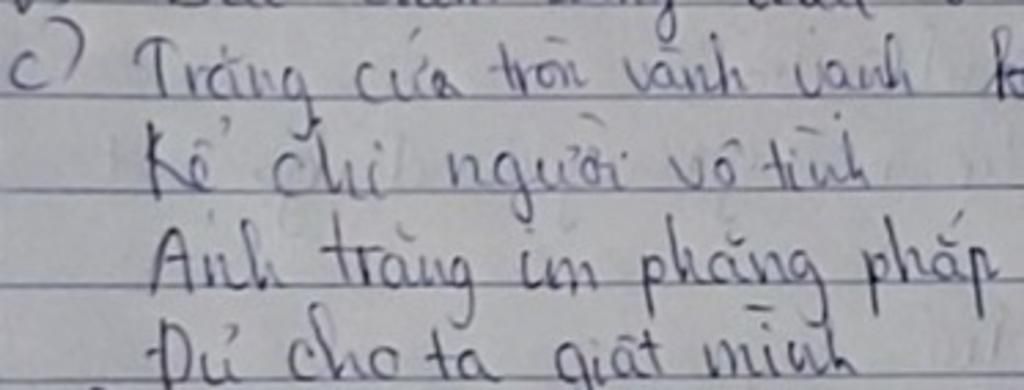 c) Trăng cứa tròn vành vanh
Kể chi người vô tình
Ánh trăng im phăng phắp
Đủ cho ta giật mình